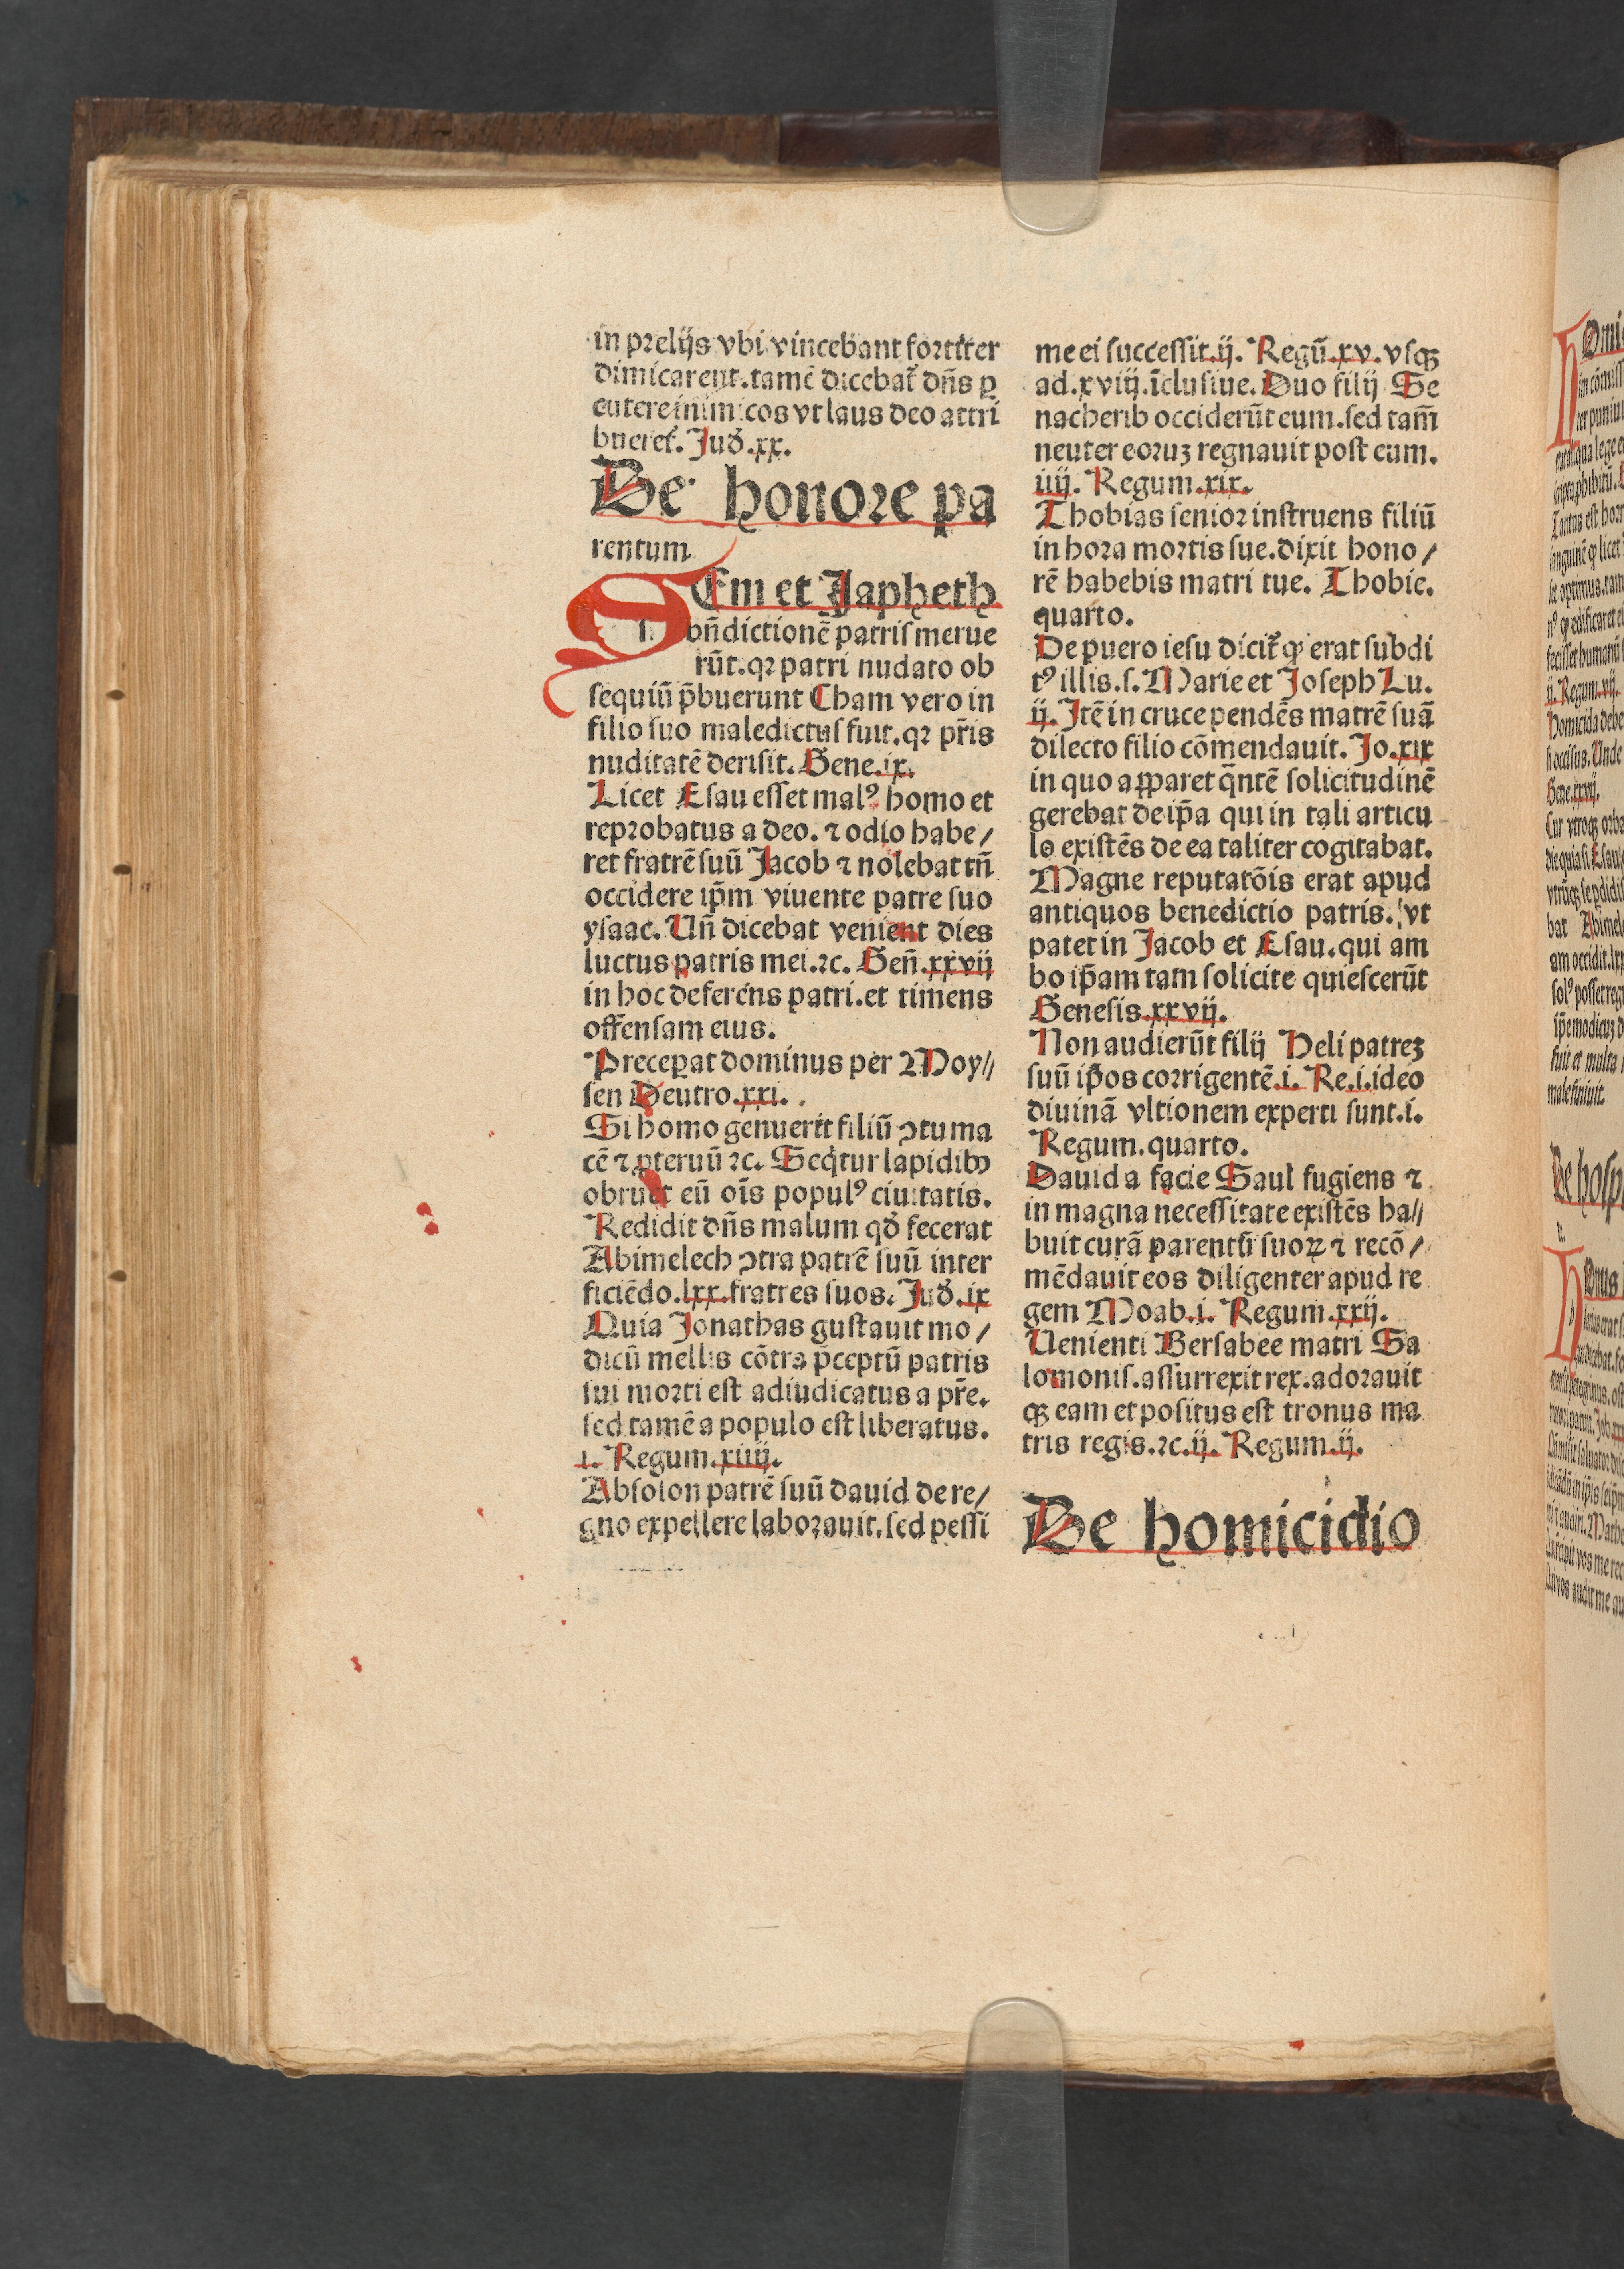 in prelijs vbi vincebant fortiter
dimicarent. tamē dicebat᷑ dn̄s ꝑ
cutere inimicos vt laus deo attri
bueret᷑. Jud̄. xx.
De honore pa
rentum
SEm et Japheth
bn̄dictionē patris merue
rūt. qꝛ patri nudato ob
sequiū p̄buerunt Cham vero in
filio suo maledictus fuit. qꝛ pr̄is
nuditatē derisit. Gene. ix.
Licet Esau esset malꝰ homo et
reprobatus a deo. ⁊ odio habe/
ret fratrē suū Jacob ⁊ nolebat tn̄
occidere ip̄m viuente patre suo
ysaac. Un̄ dicebat venient dies
luctus patris mei. ⁊c. Gen̄. xxvij
in hoc deferens patri. et timens
offensam eius.
Preceperat dominus per Moy//
sen Deutro. xxi.
Si homo genuerit filiū ꝯtuma
cē ⁊ ꝓteruū ⁊c. Seq̇tur lapidibꝰ
obruet eū oīs populꝰ ciuitatis.
Reddidit dn̄s malum qd̄ fecerat
Abimelech ꝯtra patrē suū inter
ficiēdo. lxx. fratres suos. Jud̄. ix
Quia Jonathas gustauit mo/
dicū mellis cōtra p̄ceptū patris
sui morti est adiudicatus a pr̄e.
sed tamē a populo est liberatus.
i. Regum. xiiij.
Absolon patrē suū dauid de re/
gno expellere laborauit. sed pessi
me ei successit. ij. Regū. xv. vsqꝫ
ad. xviij. īclusiue. Duo filij Se
nacherib occiderūt eum. sed tam̄
neuter eoruꝫ regnauit post eum.
iiij. Regum. xix.
Thobias senior instruens filiū
in hora mortis sue. dixit hono/
rē habebis matri tue. Thobie.
quarto.
De puero iesu dicit᷑ ꝙ erat subdi
tꝰ illis. s. Marie et Joseph Lu.
ij. Itē in cruce pendēs matrē suā
dilecto filio cōmendauit. Jo. xix
in quo apparet q̄ntē solicitudinē
gerebat de ip̄a qui in tali articu
lo existēs de ea taliter cogitabat.
Magne reputatōis erat apud
antiquos benedictio patris. vt
patet in Jacob et Esau. qui am
bo ip̄am tam solicite quiescerūt
Genesis. xxvij.
Non audierūt filij Heli patreꝫ
suū ip̄os corrigentē. i. Re. i. ideo
diuinā vltionem experti sunt. i.
Regum. quarto.
Dauid a facie Saul fugiens ⁊
in magna necessitate existēs ha//
buit curā parentū suoꝝ ⁊ recō/
mēdauit eos diligenter apud re
gem Moab. i. Regum. xxij.
Uenienti Bersabee matri Sa
lomonis. assurrexit rex. adorauit
qꝫ eam et positus est tronus ma
tris regis. ⁊c. ij. Regum. ij.
De homicidio